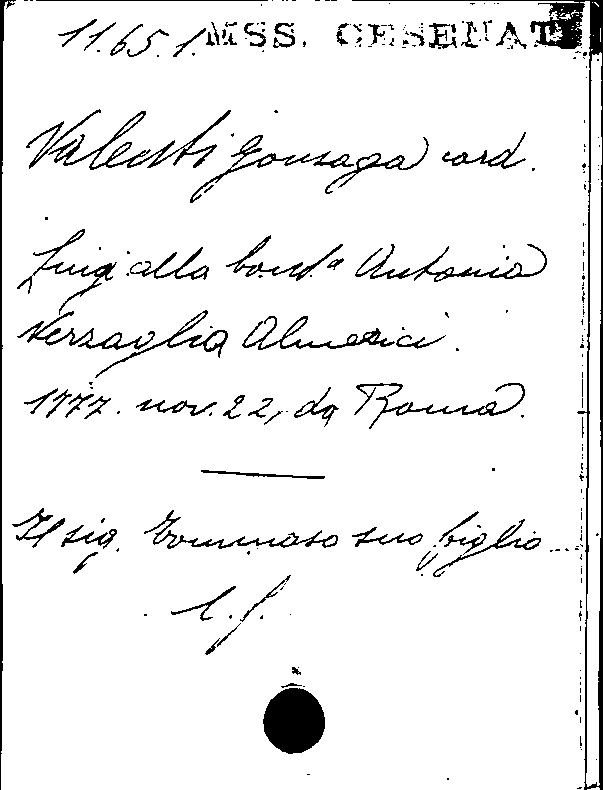 11.65.1. MSS. CESENAT
Valenti Gonzaga card.
Luigi alla cont.ª Antonia
Verzaglia Almerici.
1777. nov. 22, da Roma.
Il sig. Tommaso suo figlio...